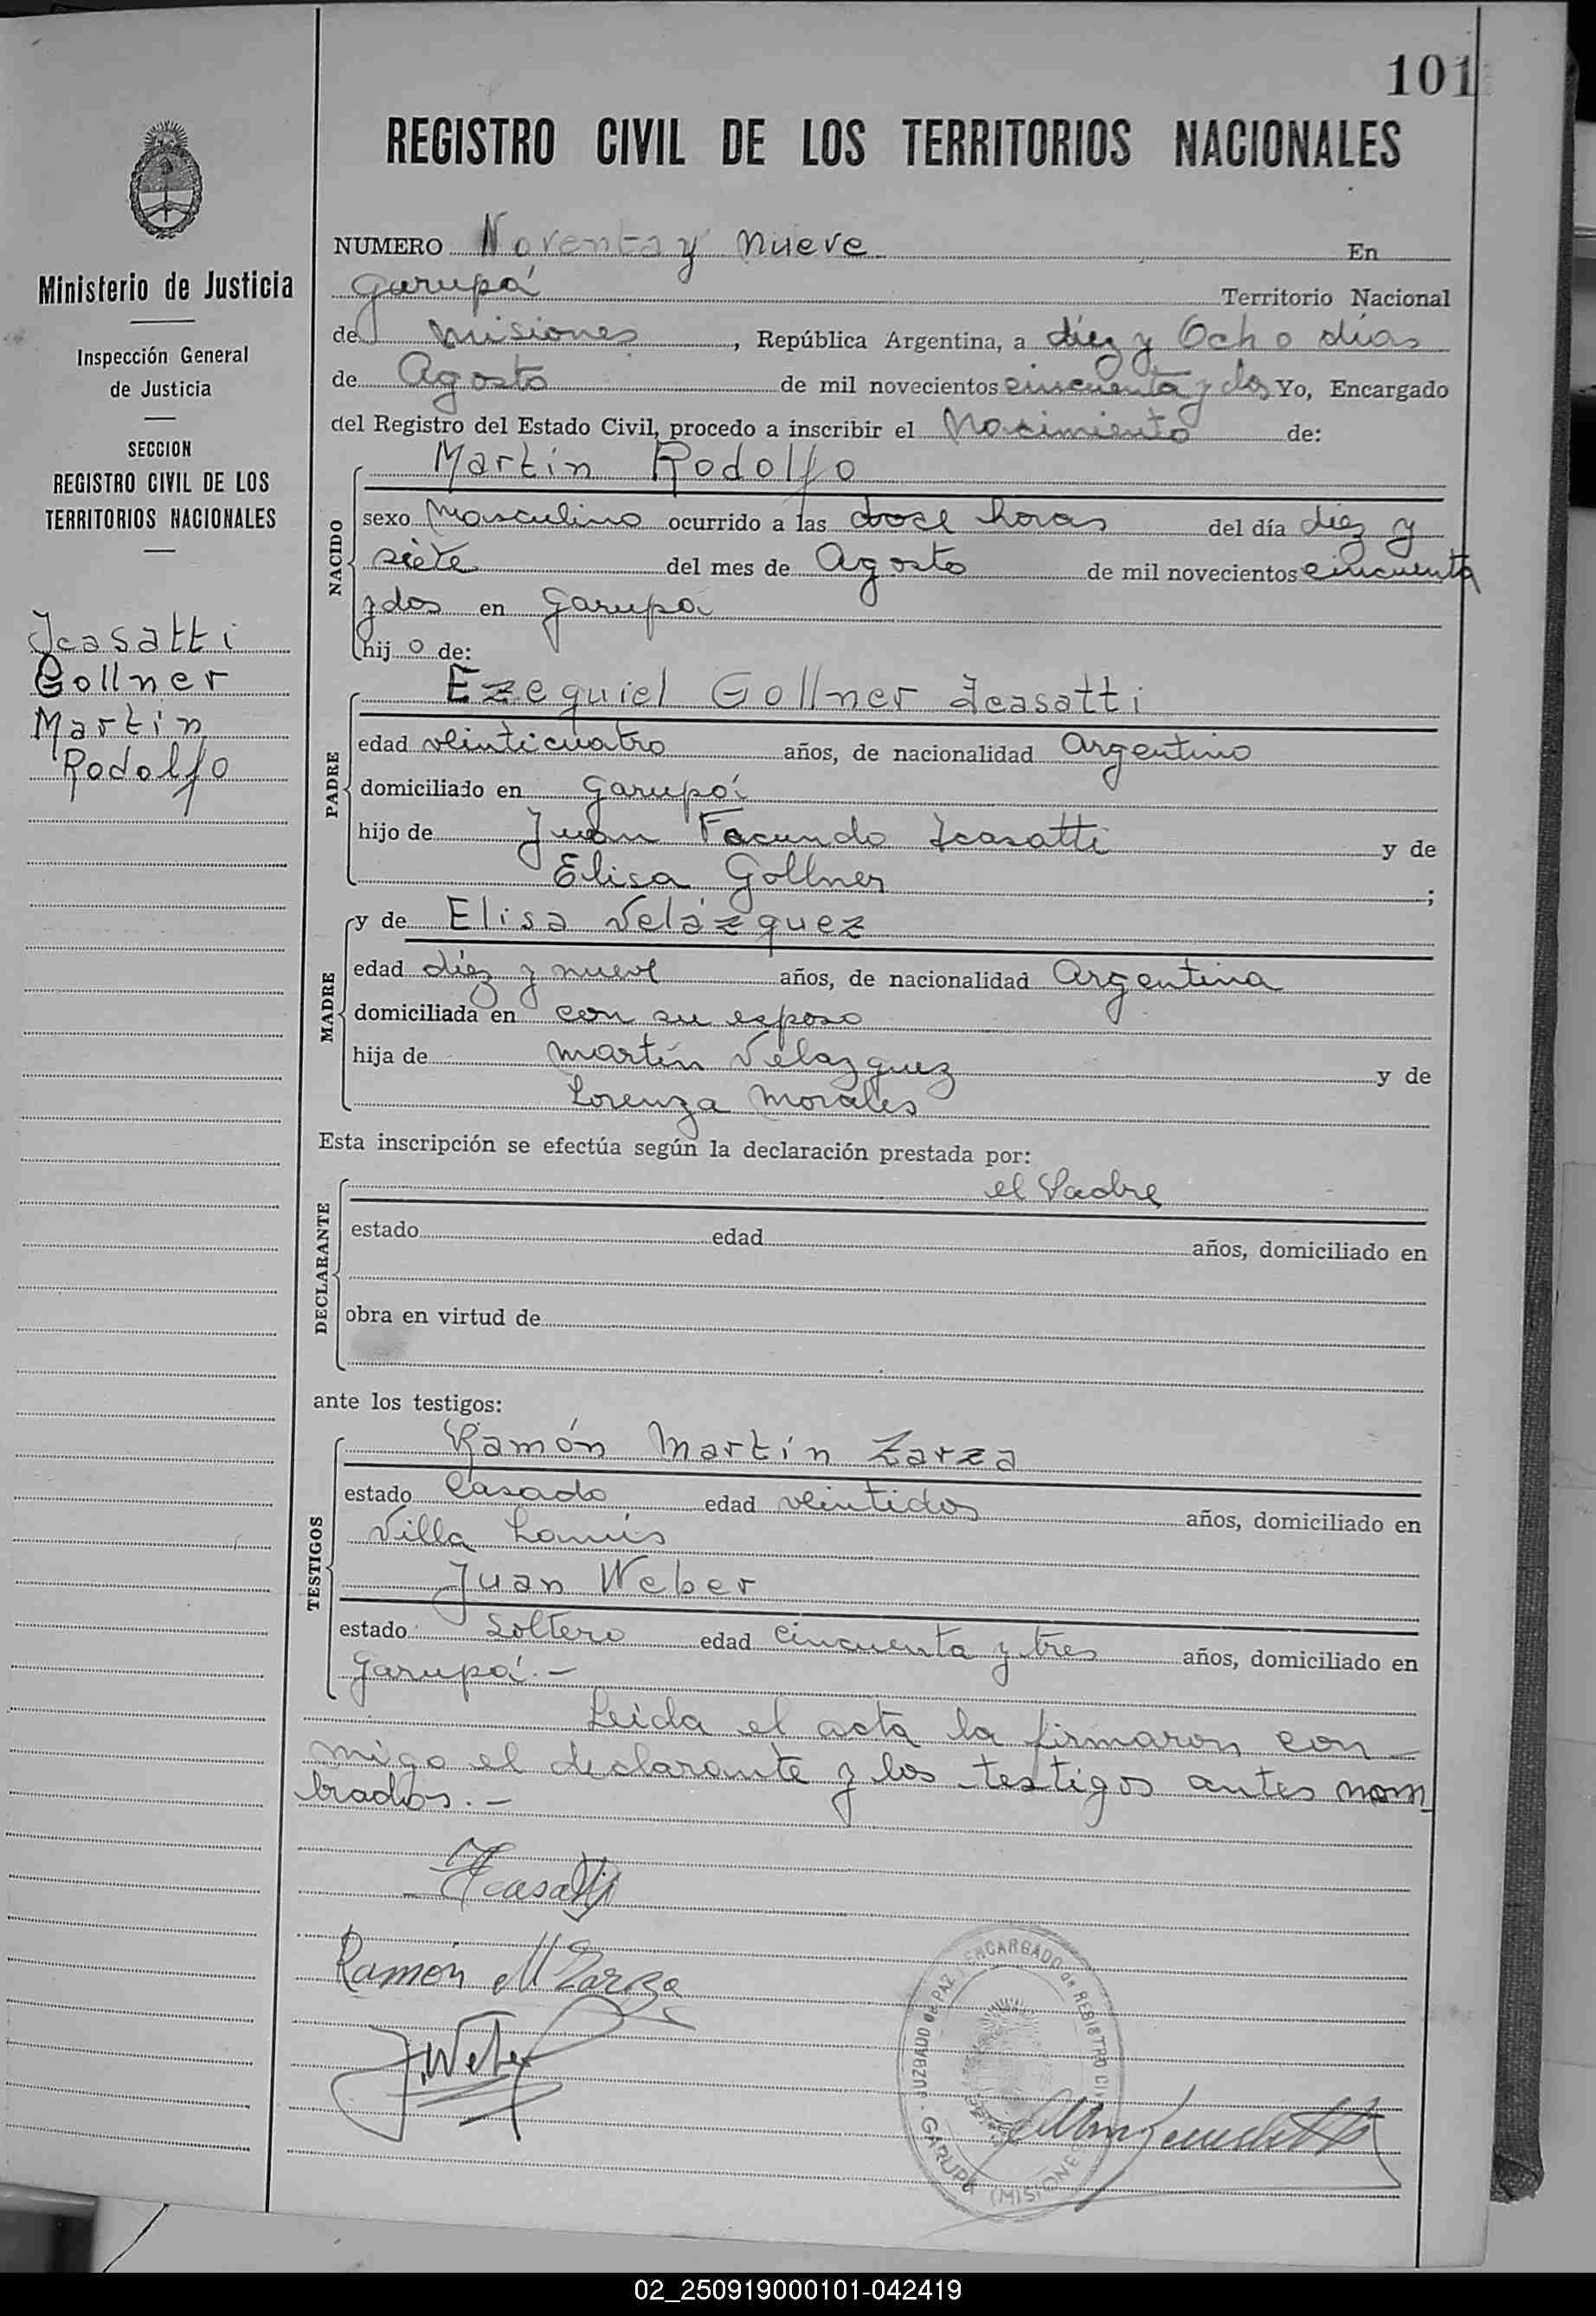 101
REGISTRO CIVIL DE LOS TERRITORIOS NACIONALES
Ministerio de Justicia
Inspección General
de Justicia
SECCION
REGISTRO CIVIL DE LOS
TERRITORIOS NACIONALES
Icasatti
Gollner
Martín
Rodolfo
NUMERO Noventa y nueve En
Garupá Territorio Nacional
de Misiones, República Argentina, a diez y Ocho días
de Agosto de mil novecientos cincuenta y dos Yo, Encargado
del Registro del Estado Civil, procedo a inscribir el Nacimiento de:
NACIDO
Martín Rodolfo
sexo Masculino ocurrido a las doce horas del día diez y
siete del mes de Agosto de mil novecientos cincuenta
y dos en Garupá
hijo de:
PADRE
Ezequiel Gollner Icasatti
edad veinticuatro años, de nacionalidad Argentino
domiciliado en Garupá
hijo de Juan Facundo Icasatti y de
Elisa Gollner ;
MADRE
y de Elisa Velázquez
edad diez y nueve años, de nacionalidad Argentina
domiciliada en con su esposo
hija de Martín Velazquez y de
Lorenza Morales
Esta inscripción se efectúa según la declaración prestada por:
DECLARANTE
el Padre
estado edad años, domiciliado en
obra en virtud de
ante los testigos:
TESTIGOS
Ramón Martín Zarza
estado Casado edad veintidos años, domiciliado en
Villa Lanús
Juan Weber
estado Soltero edad cincuenta y tres años, domiciliado en
Garupá.—
Leida el acta la firmaron con-
migo el declarante y los testigos antes nom
brados.—
Icasatti
Ramón M Zarza
J. Weber
JUZGADO de PAZ ENCARGADO de REGISTRO CIVIL
GARUPÁ (MISIONES)
02_250919000101-042419